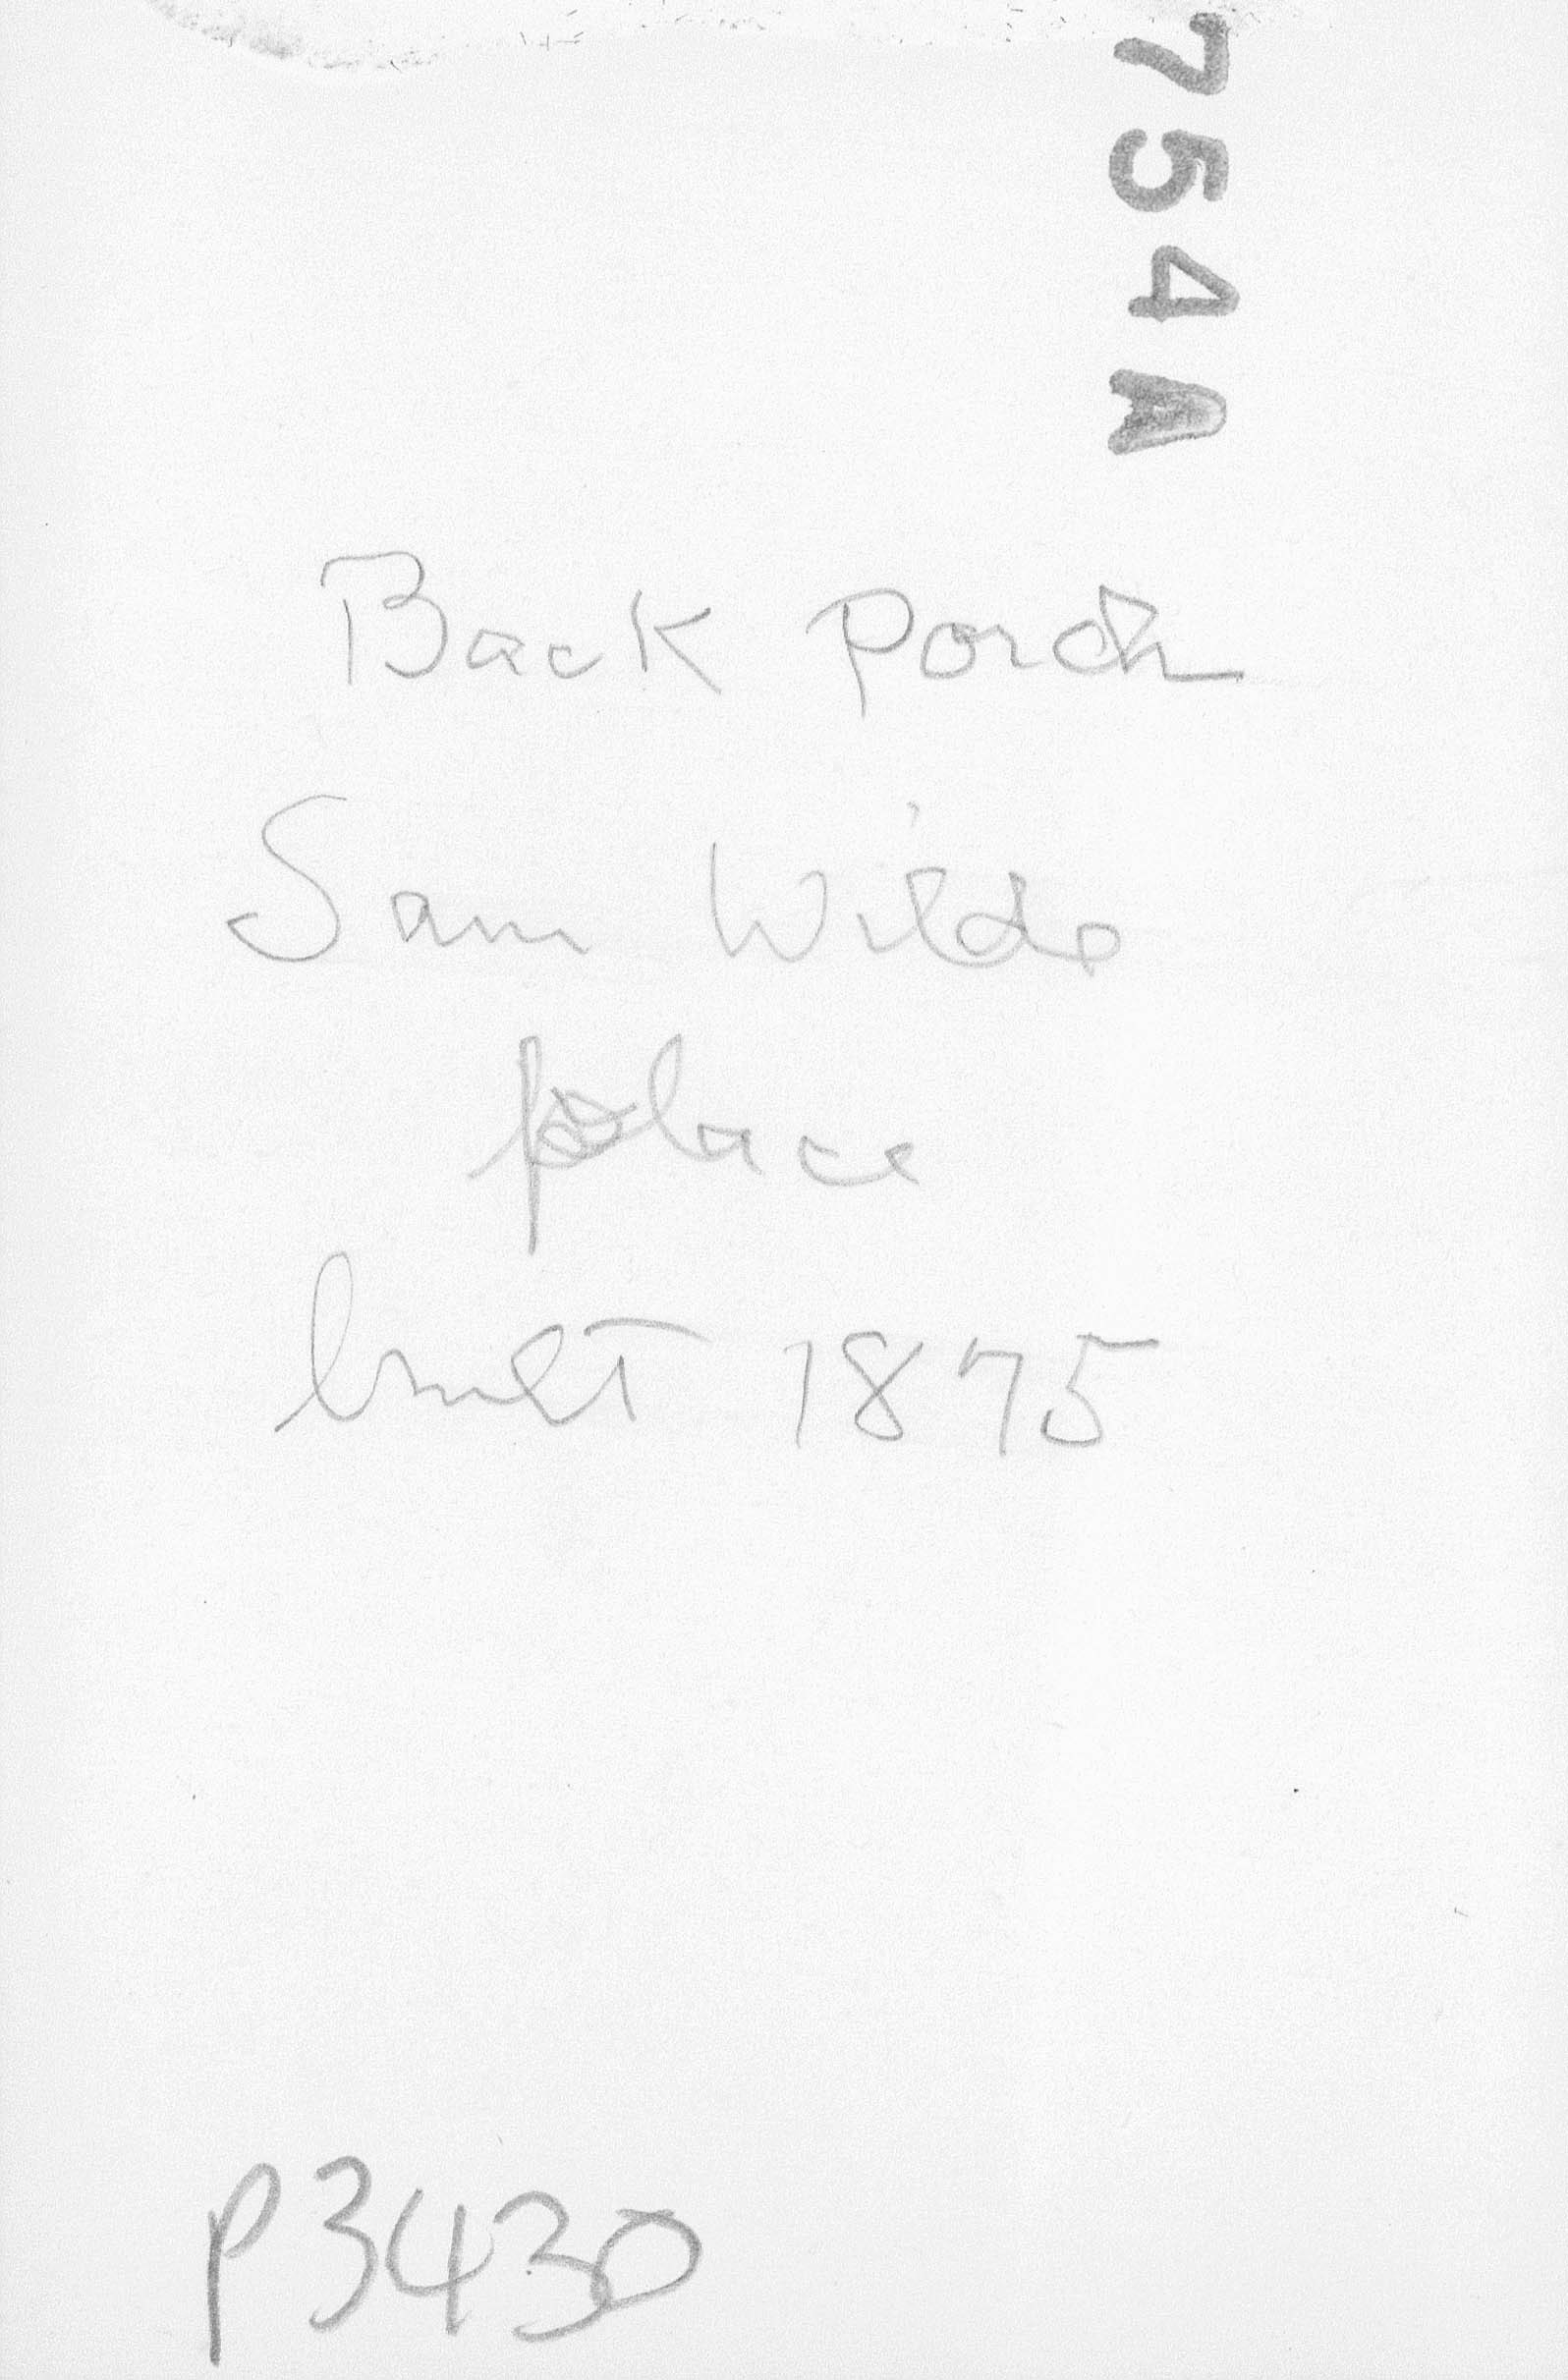 754A
Back Porch
Sam Wilds
place
built 1875
P3430